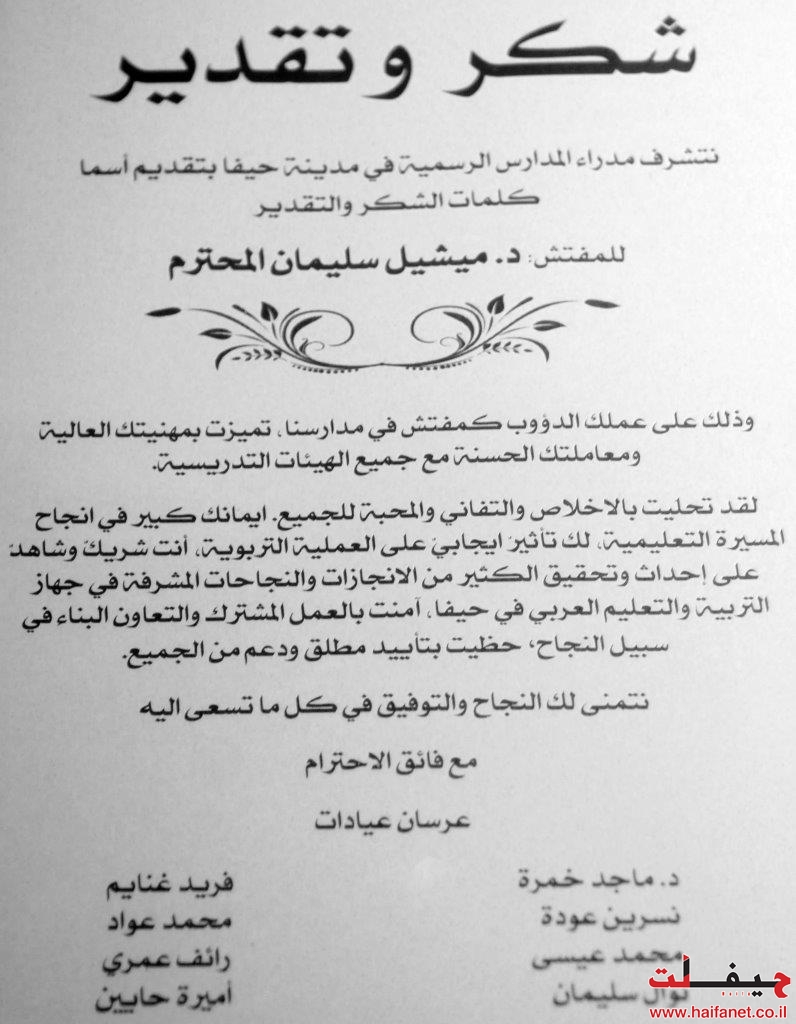 شكر وتقدير
نتشرف مدراء المدارس الرسمية في مدينة حيفا بتقديم أسما
كلمات الشكر والتقدير
للمفتش: د. ميشيل سليمان المحترم
وذلك على عملك الدؤوب كمفتش في مدارسنا، تميزت بمهنيتك العالية
ومعاملتك الحسنة مع جميع الهيئات التدريسية.
لقد تحليت بالاخلاص والتفاني والمحبة للجميع. ايمانك كبير في انجاح
المسيرة التعليمية، لك تأثيرَ ايجابيَ على العملية التربوية، أنت شريكَ وشاهدَ
على إحداث وتحقيق الكثير من الانجازات والنجاحات المشرفة في جهاز
التربية والتعليم العربي في حيفا، آمنت بالعمل المشترك والتعاون البناء في
سبيل النجاح، حظيت بتأييد مطلق ودعم من الجميع.
نتمنى لك النجاح والتوفيق في كل ما تسعى اليه
مع فائق الاحترام
عرسان عيادات
د. ماجد خمرة
نسرين عودة
محمد عيسى
نوال سليمان
فريد غنايم
محمد عواد
رائف عمري
أميرة حايين
حيفا نت
www.haifanet.co.il